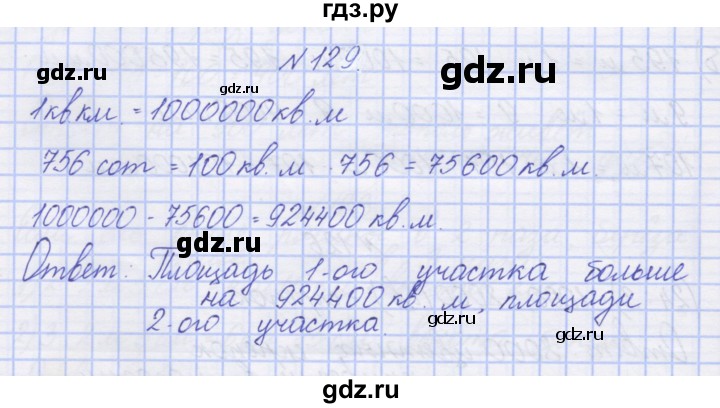 гдз.ру
gdz.ru
gdz.ru
N 129.
gdz.ru
1 кв км. = 1000000 кв. м
756 сот = 100 кв. м · 756 = 75600 кв. м.
1000000 - 75600 = 924400 кв. м.
gdz.ru
Ответ: Площадь 1-ого участка больше
на 924400 кв. м, площади
2-ого участка.
gdz.ru
gdz.ru
gdz.ru